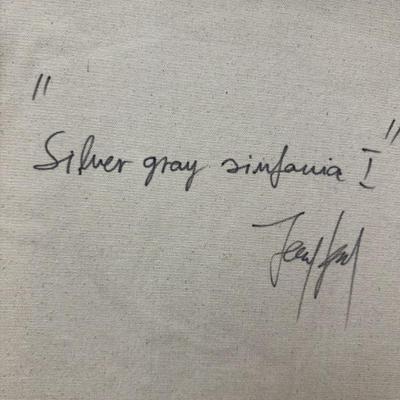 "Silver gray sinfonia I"